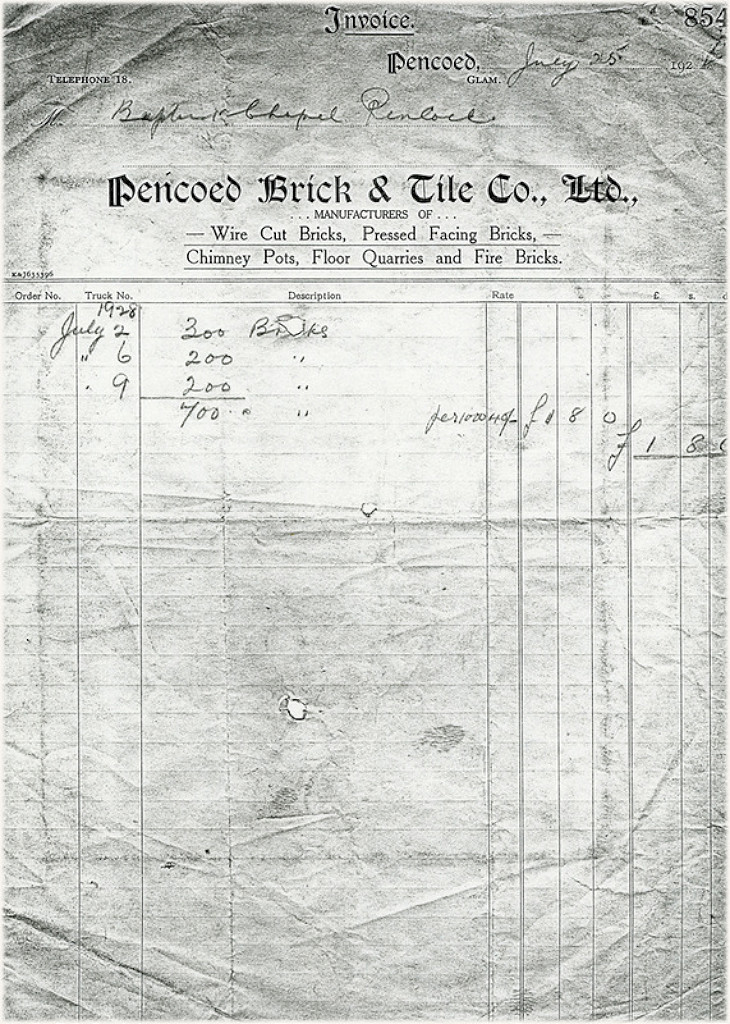 Invoice.
854
Pencoed, July 25 192
GLAM.
TELEPHONE 18.
M Baptist Chapel Penlock
Pencoed Brick & Tile Co., Ltd.,
... MANUFACTURERS OF ...
— Wire Cut Bricks, Pressed Facing Bricks, —
Chimney Pots, Floor Quarries and Fire Bricks.
Order No. Truck No. Description Rate £ s. d
1928
July 2 300 Bricks
" 6 200 "
" 9 200 "
700 "
per 1000 40/- £ 1 8 0
£ 1 8 0